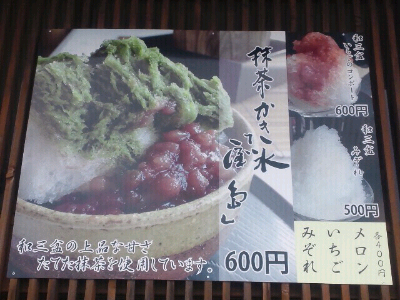 抹茶かき氷
「屋島」
和三盆の上品な甘さ
たてた抹茶を使用しています。
600円
和三盆
いちごコンポート
600円
和三盆
みぞれ
500円
各400円
メロン
いちご
みぞれ